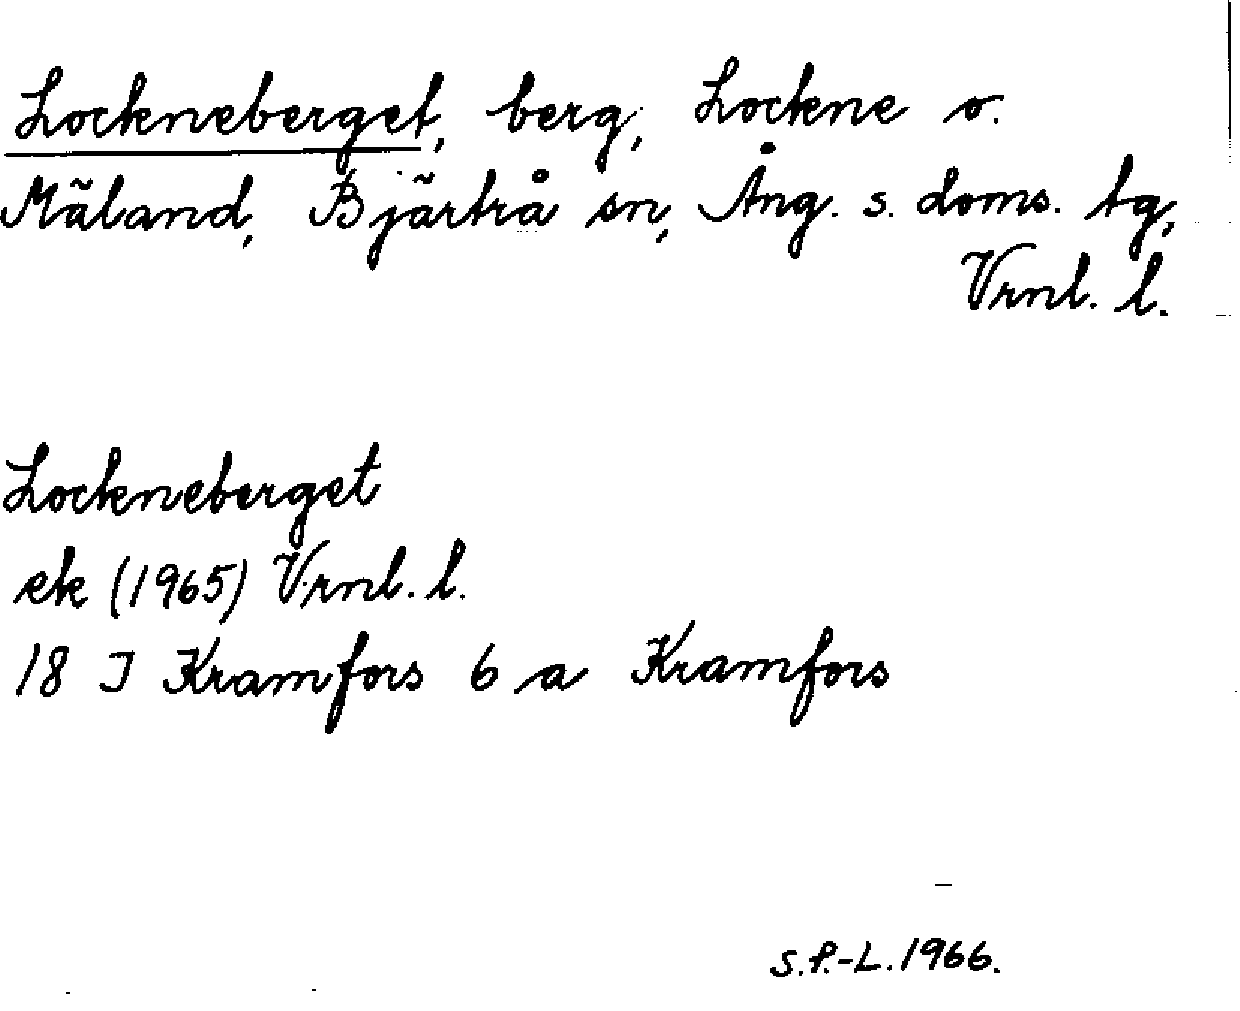 Lockneberget, berg, Lockne o.
Mäland, Bjärtrå sn, Ång. s. doms. tg,
Vrnl. l.
Lockneberget
ek (1965) Vrnl. l.
18 I Kramfors 6 a Kramfors
S.P.-L. 1966.